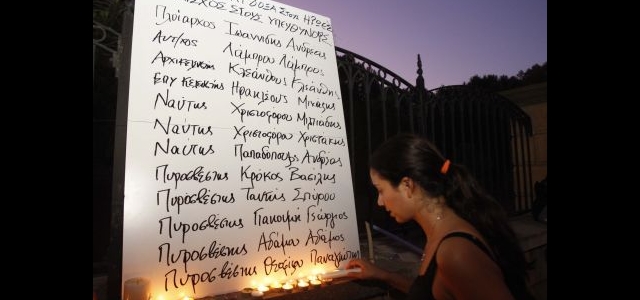 ΚΑΙ ΔΟΞΑ ΣΤΟΥΣ ΗΡΩΕΣ
ΣΤΟΥΣ ΥΠΕΥΘΥΝΟΥΣ
Πλοίαρχος Ιωαννίδης Ανδρέας
Αντ/χος Λάμπρου Λάμπρος
Αρχικελευστής Κλεάνθους Κλεάνθης
Ηρακλέους Μιχάλης
Ναύτης Χριστοφόρου Μιλτιάδης
Ναύτης Χριστοφόρου Χριστάκης
Ναύτης Παπαδόπουλος Ανδρέας
Πυροσβέστης Κρόκος Βασίλης
Πυροσβέστης Τανττής Σπύρου
Πυροσβέστης Γιακουμή Γεώργιος
Πυροσβέστης Αδάμου Αδάμος
Πυροσβέστης Θεοφίλου Παναγιώτης